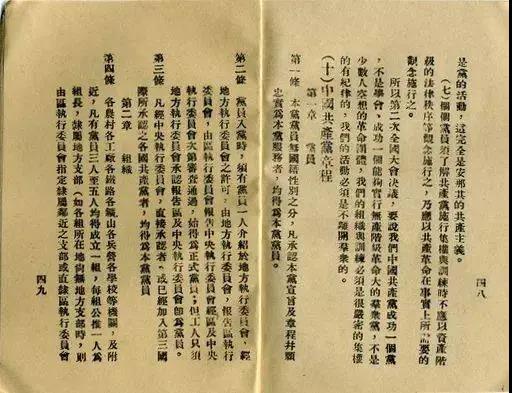 四八
是黨的活動，這完全是安那其的共產主義。
（七）個個黨員須了解共產黨施行集權與訓練時不應以資產階
級的法律秩序等觀念施行之，乃應以共產革命在事實上所需要的
觀念施行之。
所以第二次全國大會決議，要說我們中國共產黨成功一個黨
，不是學會，成功一個能夠實行無產階級革命大的羣衆黨，不是
少數人空想的革命團體，我們的組織與訓練必須是很嚴密的集權
的有紀律的，我們的活動必須是不離開羣衆的。
（十）中國共產黨章程
第一章　黨員
第一條　本黨黨員無國籍性別之分，凡承認本黨宣言及章程并願
忠實爲本黨服務者，均得爲本黨黨員。
第二條　黨員入黨時，須有黨員一人介紹於地方執行委員會，經
地方執行委員會之許可，由地方執行委員會，報告區執行
委員會，由區執行委員會報告中央執行委員會經區及中央
執行委員會次第審查通過，始得爲正式黨員；但工人只須
地方執行委員會承認報告區及中央執行委員會卽爲黨員。
第三條　凡經中央執行委員會，直接承認者，或已經加入第三國
際所承認之各國共產黨者，均得爲本黨黨員
第二章　組織
第四條　各農村各工廠各鐵路各鑛山各兵營各學校等機關，及附
近，凡有黨員三人至五人均得成立一組，每組公推一人爲
組長，隸屬地方支部，（如各組所在地尙無地方支部時，則
由區執行委員會指定隸屬鄰近之支部或直隸區執行委員會
四九